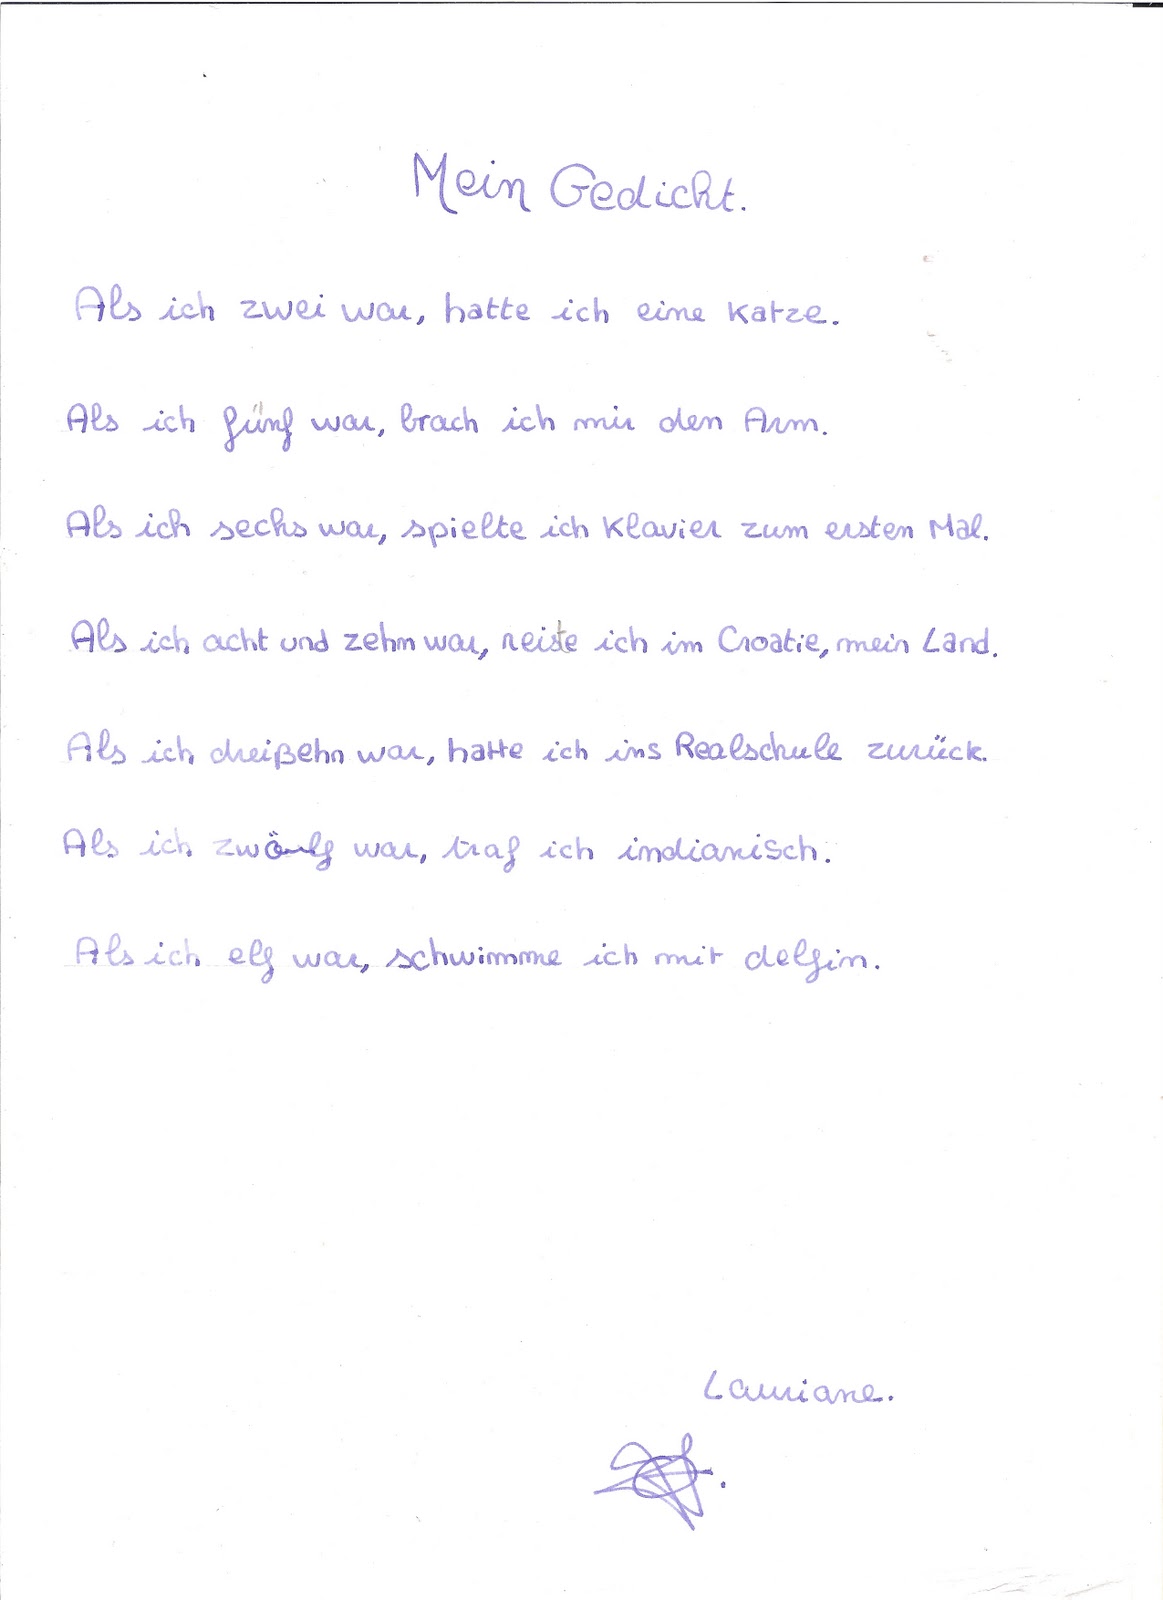 Mein Gedicht.
Als ich zwei war, hatte ich eine Katze.
Als ich fünf war, brach ich mir den Arm.
Als ich sechs war, spielte ich Klavier zum ersten Mal.
Als ich acht und zehn war, reiste ich im Croatie, mein Land.
Als ich dreißehn war, hatte ich ins Realschule zurück.
Als ich zwölf war, traf ich indianisch.
Als ich elf war, schwimme ich mit delfin.
Lauriane.